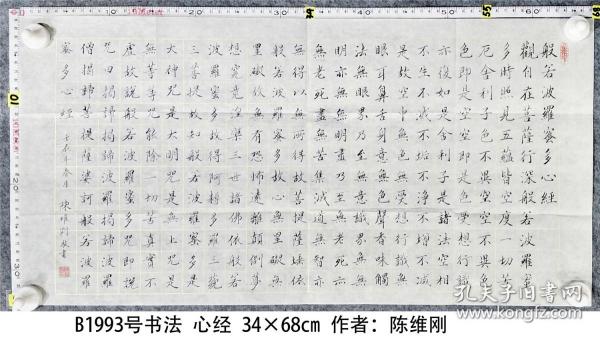 般若波羅蜜多心經
觀自在菩薩行深般若波羅蜜
多時照見五蘊皆空度一切苦
厄舍利子色不異空空不異色
色即是空空即是色受想行識
亦復如是舍利子是諸法空相
不生不滅不垢不淨不增不減
是故空中無色無受想行識無
眼耳鼻舌身意無色聲香味觸
法無眼界乃至無意識界無無
明亦無無明盡乃至無老死亦
無老死盡無苦集滅道無智亦
無得以無所得故菩提薩埵依
般若波羅蜜多故心無罣礙無
罣礙故無有恐怖遠離顛倒夢
想究竟涅槃三世諸佛依般若
波羅蜜多故得阿耨多羅三藐
三菩提故知般若波羅蜜多是
大神咒是大明咒是無上咒是
無等等咒能除一切苦真實不
虛故說般若波羅蜜多咒即說
咒曰揭諦揭諦波羅揭諦波羅
僧揭諦菩提薩婆訶般若波羅
蜜多心經 年春月 陳維剛敬書
孔夫子旧书网
B1993号书法 心经 34×68cm 作者：陈维刚